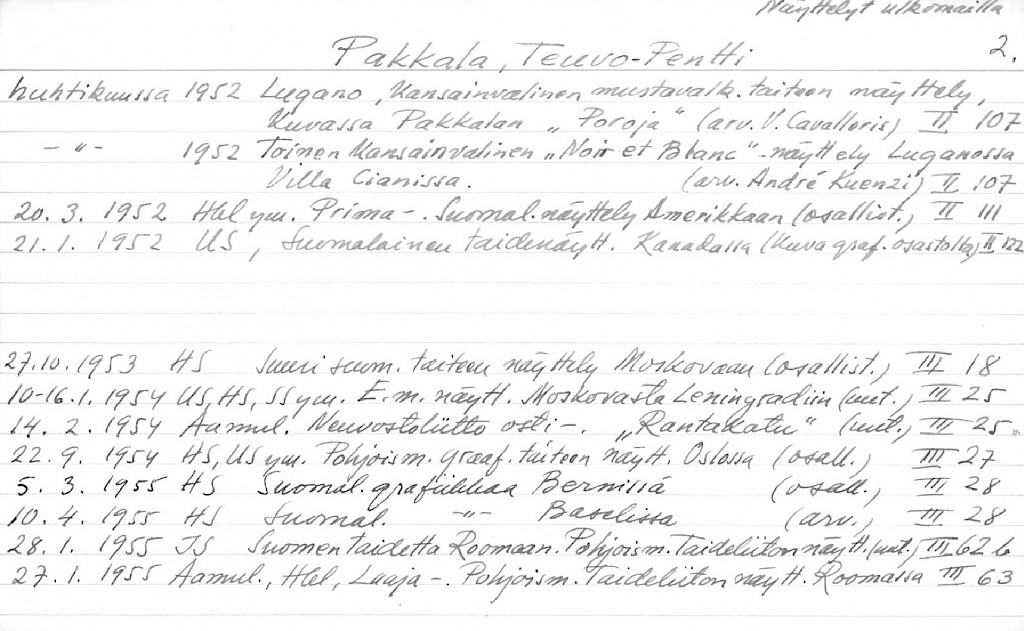 Näyttelyt ulkomailla
2.
Pakkala, Teuvo-Pentti
huhtikuussa 1952 Lugano, Kansainvälinen mustavalk. taiteen näyttely,
Kuvassa Pakkalan „Poroja" (arv. V. Cavalleris) II 107
- „ - 1952 Toinen Kansainvälinen „Noir et Blanc" -näyttely Luganossa
Villa Cianissa. (arv. André Kuenzi) II 107
20. 3. 1952 Hbl ym. Prima -. Suomal. näyttely Amerikkaan (osallist.) II 111
21. 1. 1952 US, Suomalainen taidenäytt. Kanadassa (Kuva graf. osastolta) II 122
27.10.1953 HS Suuri suom. taiteen näyttely Moskovaan (osallist.) III 18
10-16.1.1954 US, HS, SS ym. E.m. näytt. Moskovasta Leningradiin (uut.) III 25
14. 2. 1954 Aamul. Neuvostoliitto osti -. „Rantakatu" (uut.) III 25
22. 9. 1954 HS, US ym. Pohjoism. graaf. taiteen näytt. Oslossa (osall.) III 27
5. 3. 1955 HS Suomal. grafiikkaa Bernissä (osall.) III 28
10. 4. 1955 HS Suomal. - „ - Baselissa (arv.) III 28
28. 1. 1955 JS Suomen taidetta Roomaan. Pohjoism. Taideliiton näytt. (uut.) III 62 b
27. 1. 1955 Aamul., Hbl, Laaja -. Pohjoism. Taideliiton näytt. Roomassa III 63